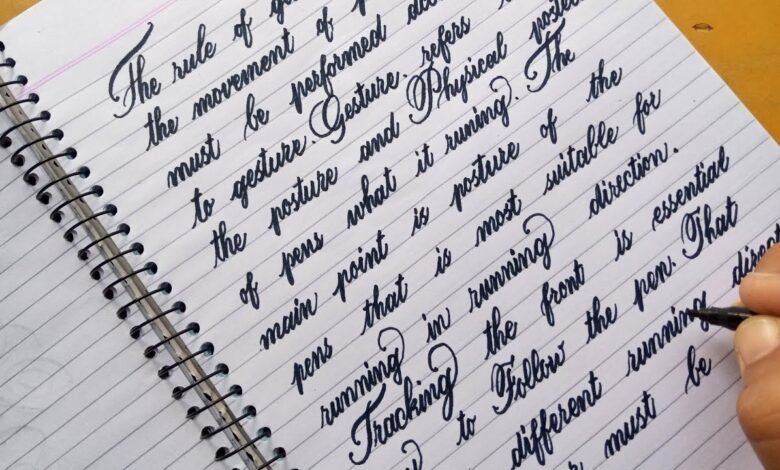 The rule of
the movement of
must be performed
to gesture. Gesture. refers
the posture and Physical
of pens what it runing. The
main point is posture of the
pens that is most suitable for
running in running direction.
Tracking the front is essential
to Follow the pen. That
different running
must be